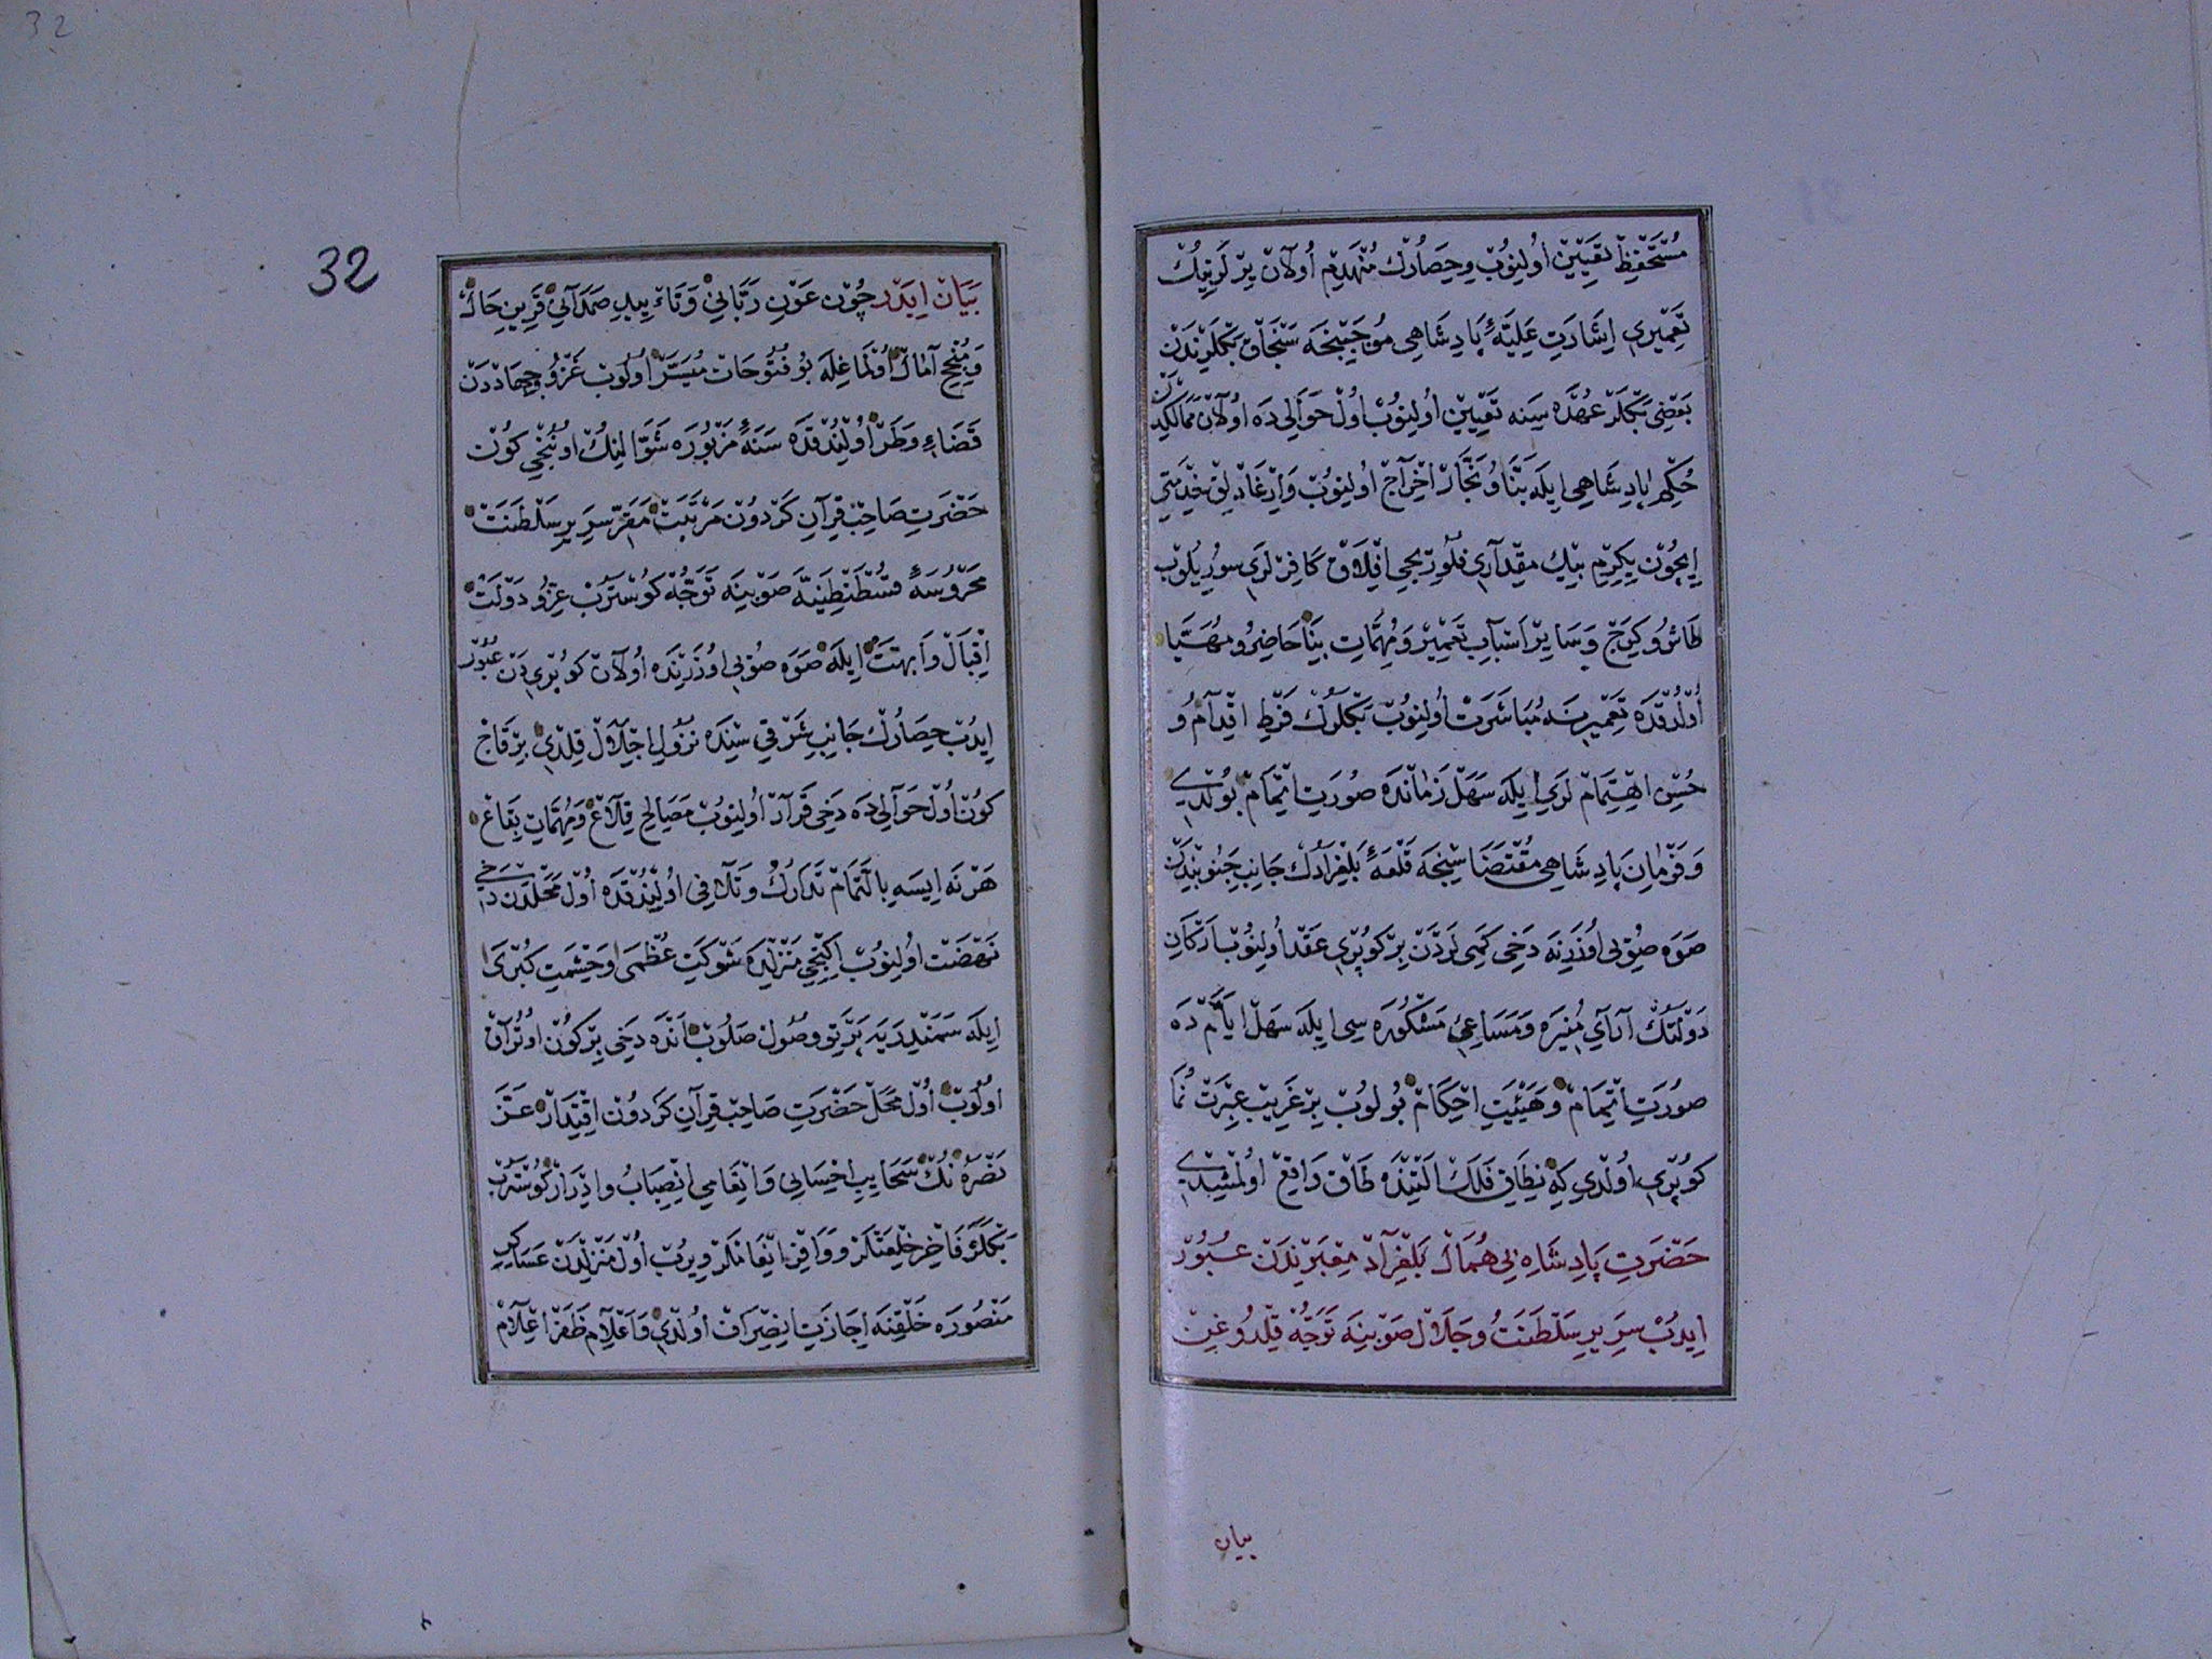 مُسْتَحْفِظْ تَعْيِينْ اُولِنُوبْ وَحِصَارُكْ مُنْهَدِمْ اُولَانْ يِرْلَرِينُكْ
تَعْمِيرِى اِشَارَتِ عَلِيَّهٔ پَادِشَاهِى مُوجَبِنْجَه سَنْجَاقْ بَكْلَرِنْدَنْ
بَعْضِى بَكْلَرْ عُهْدَه سِنَه تَعْيِينْ اُولِنُوبْ اُولْ حَوَالِى دَه اُولَانْ مَمَالِكْدَنْ
حُكْمِ پَادِشَاهِى اِيلَه بَنَّا وُ نَجَّارْ اِخْرَاجْ اُولِنُوبْ وَاِرْغَادْلِقْ خِدْمَتِى
اِيچُونْ يِكِرْمِ بِيكْ مِقْدَارِى فُلُورِيجِى اِفْلَاقْ كَافِرْلَرِى سُورِيلُوبْ
طَاشُ وكِرَجْ وَسَايِرْ اَسْبَابِ تَعْمِيرْ وَمُهِمَّاتِ بِنَا حَاضِرُ ومُهَيَّا
اُولْدُقْدَه تَعْمِيرِينَه مُبَاشَرَتْ اُولِنُوبْ بَكْلَرُكْ فَرْطِ اِقْدَامُ وُ
حُسْنِ اِهْتِمَامْ لَرِى اِيلَه سَهْلْ زَمَانْدَه صُورَتِ اِتْمَامْ بُولْدِى
وَفَرْمَانِ پَادِشَاهِى مُقْتَضَاسِنْجَه قَلْعَهٔ بَلْغِرَادُكْ جَانِبِ جَنُوبِنْدَنْ
صَوَه صُوْيِى اُوزَرِينَه دَخِى كَمِى لَرْدَنْ بِرْ كُوپْرِى عَقْدْ اُولِنُوبْ اَرْكَانِ
دَوْلَتُكْ آرَاىِ مُنِيرَه وَمَسَاعِىِٔ مَشْكُورَه سِى اِيلَه سَهْلْ اَيَّامْ دَه
صُورَتِ اِتْمَامْ وَهَيْئَتِ اِحْكَامْ بُولُوبْ بِرْ غَرِيبْ عِبْرَتْ نُمَا
كُوپْرِى اُولْدِى كِه نِطَاقِ فَلَكْ اَلْتِنْدَه طَاقْ وَاقِعْ اُولْمُشِيدِى
حَضْرَتِ پَادِشَاهِ بِى هُمَالْ بَلْغِرَادْ مِعْبَرِنْدَنْ عُبُورْ
اِيدُبْ سَرِيرِ سَلْطَنَتُ وجَلَالْ صَوْبِينَه تَوَجُّه قِلْدُوغِنْ
بيان
32
32
بَيَانْ اِيدَرْ چُونْ عَوْنِ رَبَّانِى وَتَاءْيِيدِ صَمَدَانِى قَرِينِ حَالْ
وَمُنْجِحِ آمَالْ اُولْمَاغِلَه بُو فُتُوحَاتْ مُيَسَّرْ اُولُوبْ غَزْوُ وجِهَادْدَنْ
قَضَاءِ وَطَرْ اُولِنْدُقْدَه سَنَهٔ مَزْبُورَه شَوَّالِنُكْ اُونُنْجِى كُونْ
حَضْرَتِ صَاحِبْ قِرَانِ كَرْدُونْ مَرْتَبَتْ مَقَرِّ سَرِيرِ سَلْطَنَتْ
مَحْرُوسَهٔ قُسْطَنْطِنِيَّه صَوْبِينَه تَوَجُّهْ كُوسْتَرُبْ عِزُّ ودَوْلَتْ
اِقْبَالْ وَاُبهَتْ اِيلَه صَوَه صُوْيِى اُوزَرِنْدَه اُولَانْ كُوپْرِى دَنْ عُبُورْ
اِيدُبْ حِصَارُكْ جَانِبِ شَرْقِى سِنْدَه نُزُولِ اِجْلَالْ قِلْدِى بِرْ قَاجْ
كُونْ اُولْ حَوَالِى دَه دَخِى قَرَارْ اُولِنُوبْ مَصَالِحِ قِلَاعْ وَمُهِمَّاتِ بِقَاعْ
هَرْ نَه اِيسَه بِالتَّمَامْ تَدَارُكْ وَتَلَافِى اُولِنْدُقْدَه اُولْ مَحَلْدَنْ دَخِى
نَهْضَتْ اُولِنُوبْ اِكِنْجِى مَنْزِلْدَه شَوْكَتِ عُظْمَى وَحِشْمَتِ كُبْرَى
اِيلَه سَمَنْدِرَيَه پَرْتَوِ وُصُولْ صَلُوبْ اَنْدَه دَخِى بِرْ كُونْ اُوتُرَاقْ
اُولُوبْ اُولْ مَحَلْ حَضْرَتِ صَاحِبْ قِرَانِ كَرْدُونْ اِقْتِدَارْ عَزَّ
نَصْرُهُ نُكْ سَحَايِبِ اِحْسَانِى وَاِنْعَامِى اِنْصِبَابُ واِدْرَارْ كُوسْتَرُبْ
بَكْلَرَه فَاخِرْ خِلْعَتْلَرْ وَوَافِرْ اِنْعَامْلَرْ وِيرُبْ اُولْ مَنْزِلْدَنْ عَسَاكِرِ
مَنْصُورَه خَلْقِنَه اِجَازَتِ اِنْصِرَافْ اُولْدِى وَاَعْلَامِ ظَفَرْ اِعْلَامْ